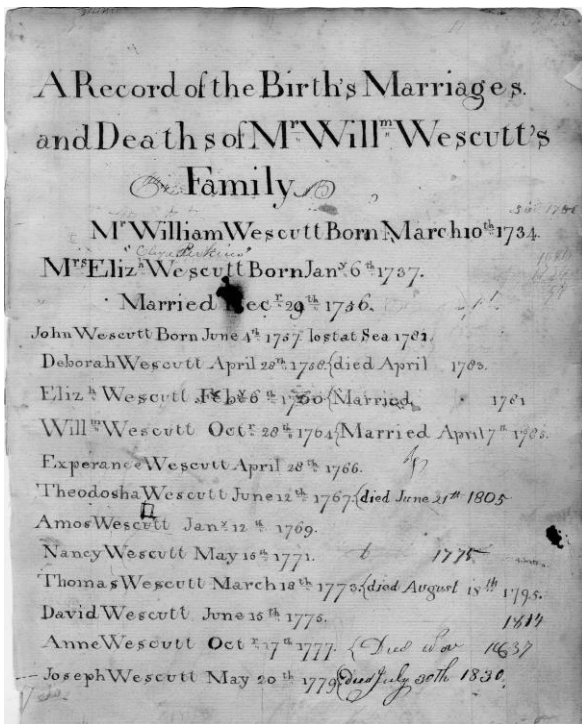 A Record of the Birth's Marriages.
and Deaths of Mr Willm Wescutt's
Family
Mr William Wescutt Born March 10th 1734.
"Eliza Perkins"
Mrs Elizh Wescutt Born Jany 6th 1737.
Married Decr 29th 1756.
John Wescutt Born June 4th 1757 lost at Sea 1781.
Deborah Wescutt April 28th 1758 {died April 1783.
Elizh Wescutt Feby 6th 1760 {Married, 1781
Willm Wescutt Octr 28th 1764 {Married April 7th
Experance Wescutt April 28th 1766.
Theodosha Wescutt June 12th 1767. {died June 21st 1805
Amos Wescutt Jany 12th 1769.
Nancy Wescutt May 15th 1771. 1775
Thomas Wescutt March 18th 1773. {died August 18th 1795.
David Wescutt June 15th 1775. 1814
Anne Wescutt Octr 17th 1777. {Died Nov 1837
Joseph Wescutt May 20th 1779 {died July 30th 1830.